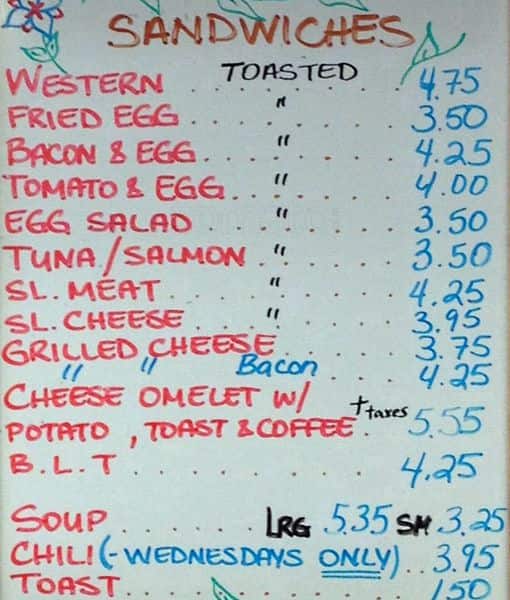 SANDWICHES
WESTERN TOASTED ........ 4.75
FRIED EGG .... " .... 3.50
BACON & EGG .... " .... 4.25
TOMATO & EGG .... " .... 4.00
EGG SALAD .... " .... 3.50
TUNA/SALMON . " .... 3.50
SL. MEAT .... " .... 4.25
SL. CHEESE .... " .... 3.95
GRILLED CHEESE .... 3.75
" " Bacon .... 4.25
CHEESE OMELET W/
POTATO, TOAST & COFFEE . + taxes 5.55
B.L.T ........ 4.25
SOUP ..... LRG 5.35 SM 3.25
CHILI (-WEDNESDAYS ONLY) .. 3.95
TOAST ........ 1.50